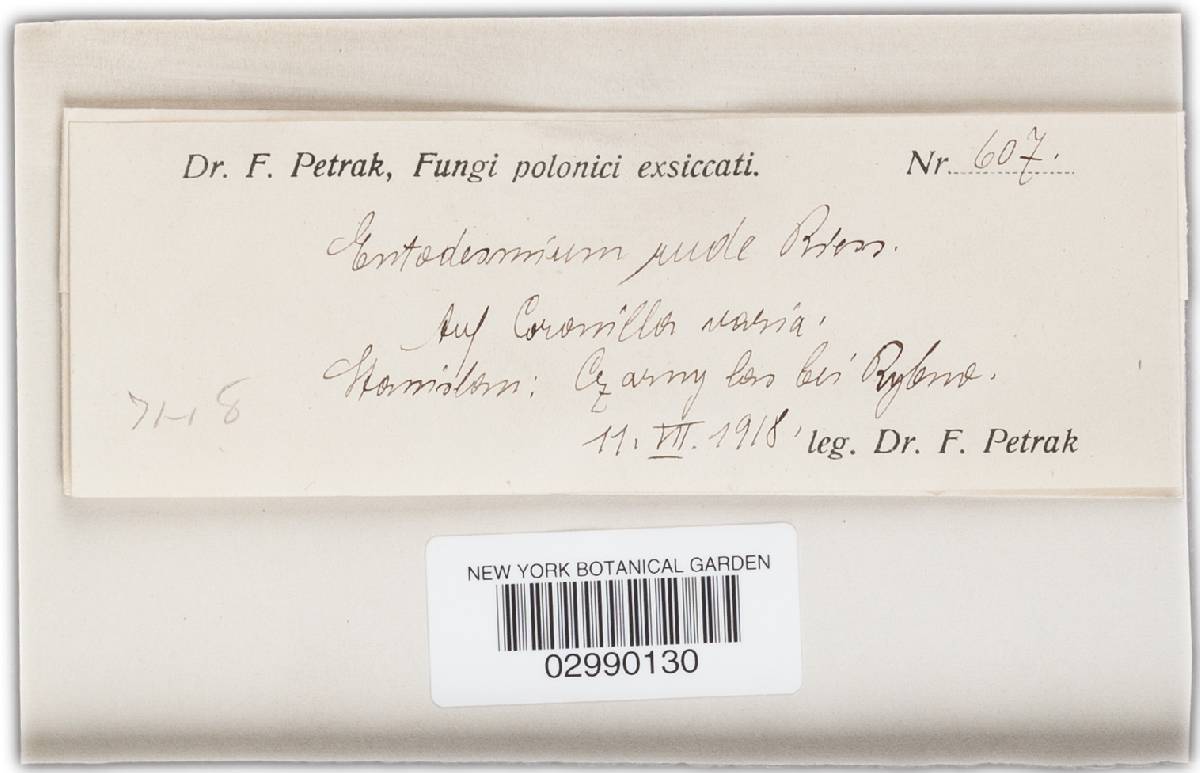 Dr. F. Petrak, Fungi polonici exsiccati. Nr. 607.
Entodesmium rude Riess.
Auf Coronilla varia.
Stanislau: Czarny las bei Rybno.
11. VII. 1918. leg. Dr. F. Petrak
NEW YORK BOTANICAL GARDEN
02990130